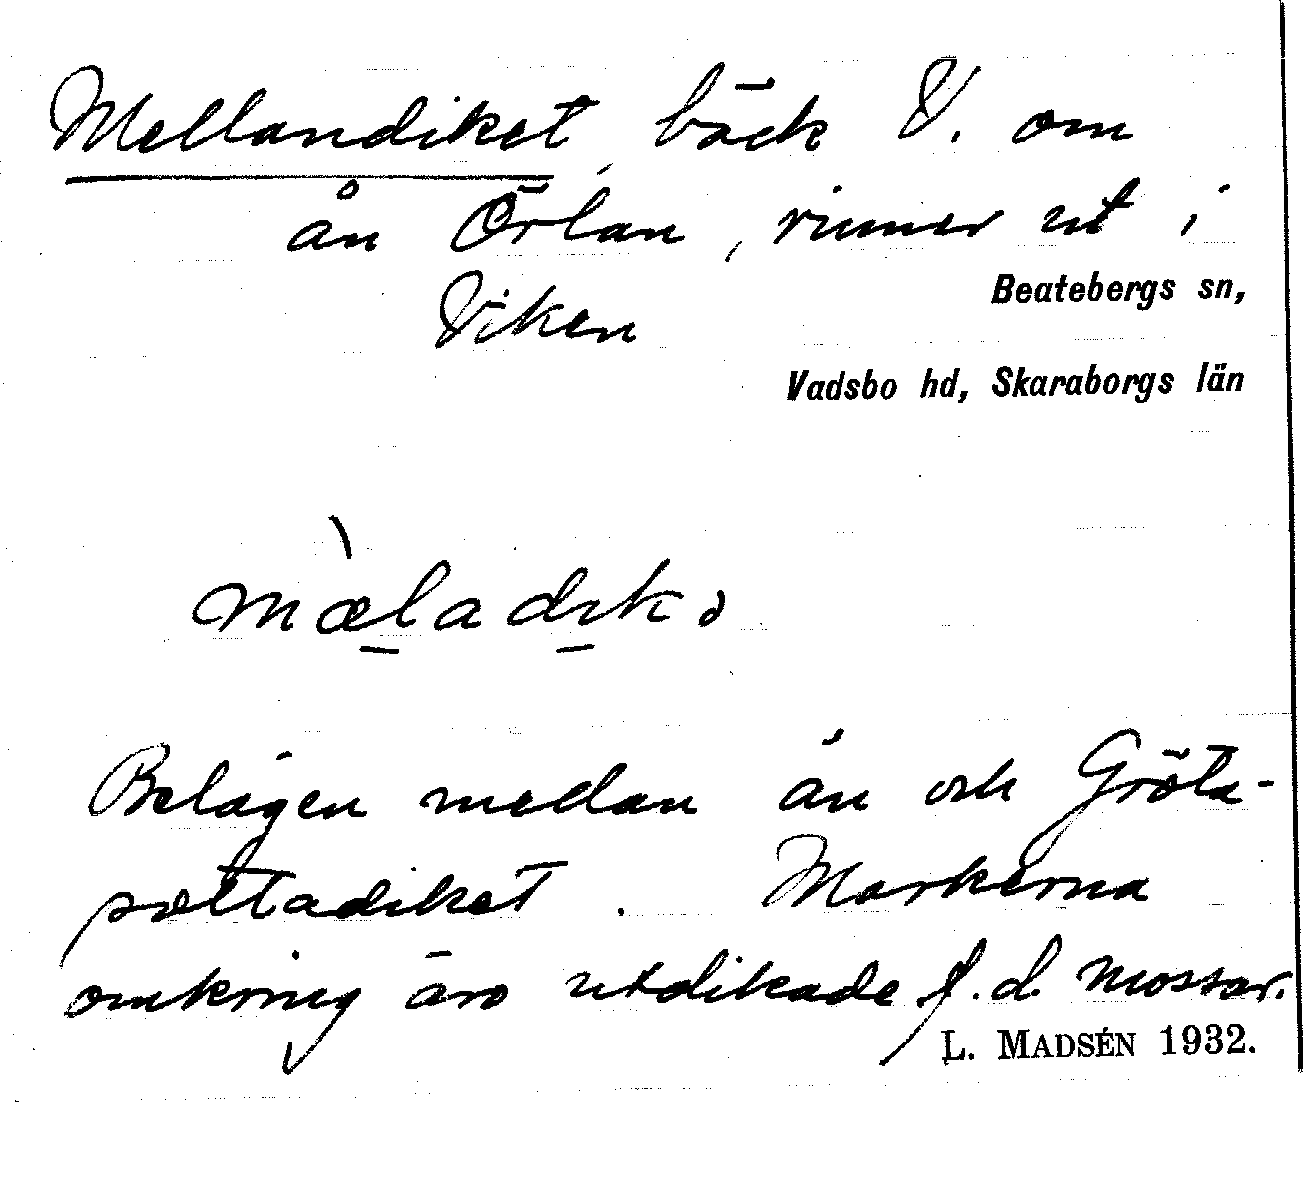 Mellandiket, bäck V. om
ån Örlan, rinner ut i
Viken
Beatebergs sn,
Vadsbo hd, Skaraborgs län
mæ̀ladikə
Belägen medan ån och Gröta-
pøttadiket. Markerna
omkring äro utdikade f.d. mossar.
L. MADSÉN 1932.